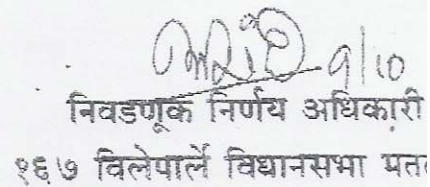 ९/१०
निवडणूक निर्णय अधिकारी
१६७ विलेपार्ले विधानसभा